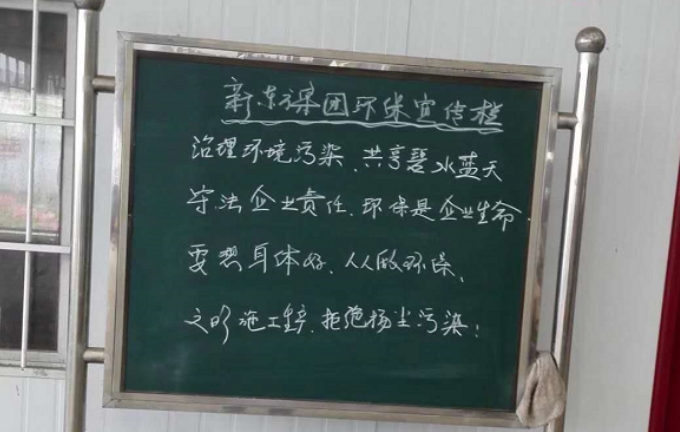 新东方集团环保宣传栏
治理环境污染、共享碧水蓝天
守法企业责任、环保是企业生命、
要想身体好、人人做环保、
文明施工、拒绝扬尘污染;